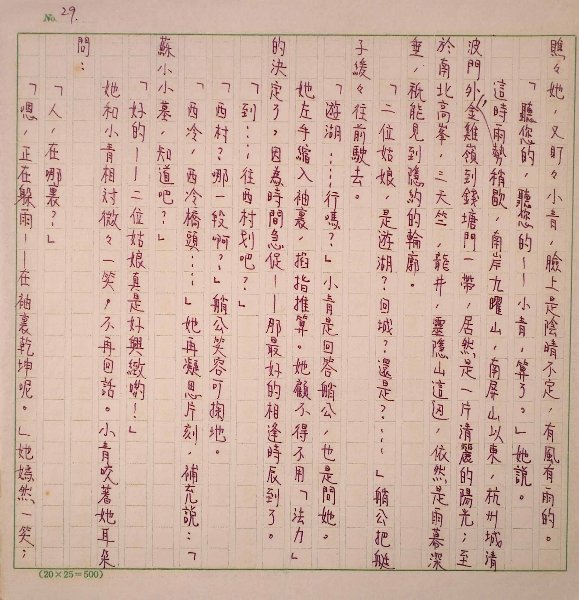 No. 29.
瞧々她,又盯々小青,臉上是陰晴不定,有風有雨的。
「聽您的,聽您的——小青,算了。」她說。
這時雨勢稍歇,南岸九曜山,南屏山以東,杭州城清
波門外金雞嶺到錢塘門一帶,居然是一片清麗的陽光;至
於南北高峯,三天竺,龍井,靈隱山這邊,依然是雨幕深
垂,祇能見到隱約的輪廓。
「二位姑娘,是遊湖?回城?還是?……」艄公把艇
子緩々往前駛去。
「遊湖……行嗎?」小青是回答艄公,也是問她。
她左手縮入袖裏,掐指推算。她顧不得不用「法力」
的決定了,因為時間急促——那最好的相逢時辰到了。
「到……往西村划吧?」
「西村?哪一段啊?」艄公笑容可掬地。
「西冷,西冷橋頭……」她再凝思片刻,補充說:「
蘇小小墓,知道吧?」
「好的——二位姑娘真是好興緻喲!」
她和小青相對微々一笑,不再回話。小青咬著她耳朵
問:
「人,在哪裏?」
「嗯,正在躲雨——在袖裏乾坤呢。」她嫣然一笑;
(20×25=500)